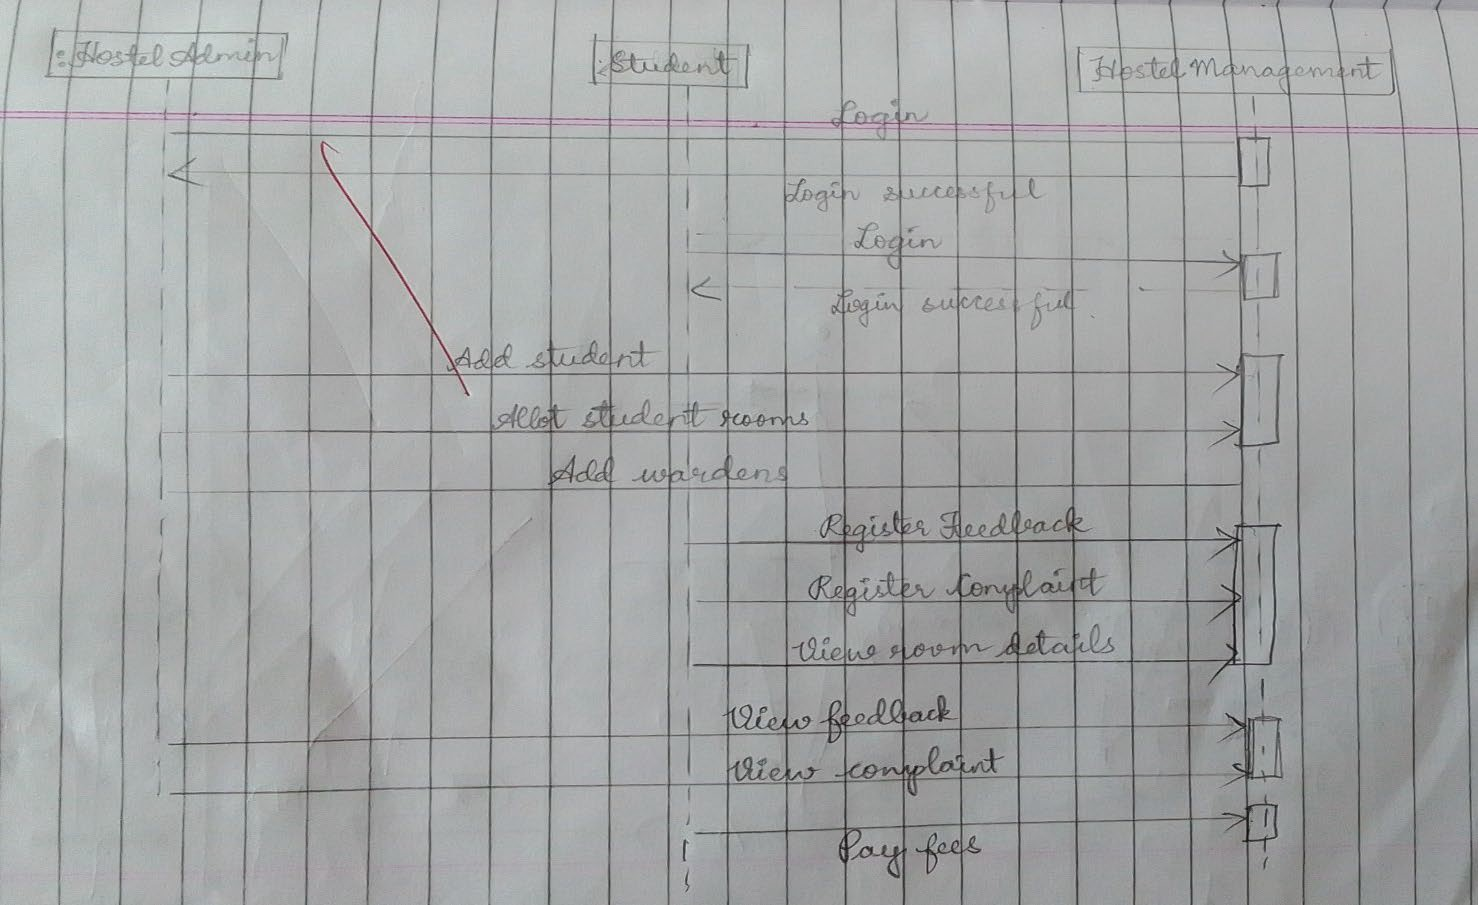 :Hostel Admin
:Student
Hostel Management
Login
Login successful
Login
Login successful
Add student
Allot student rooms
Add wardens
Register Feedback
Register Complaint
View room details
View feedback
View complaint
Pay fees